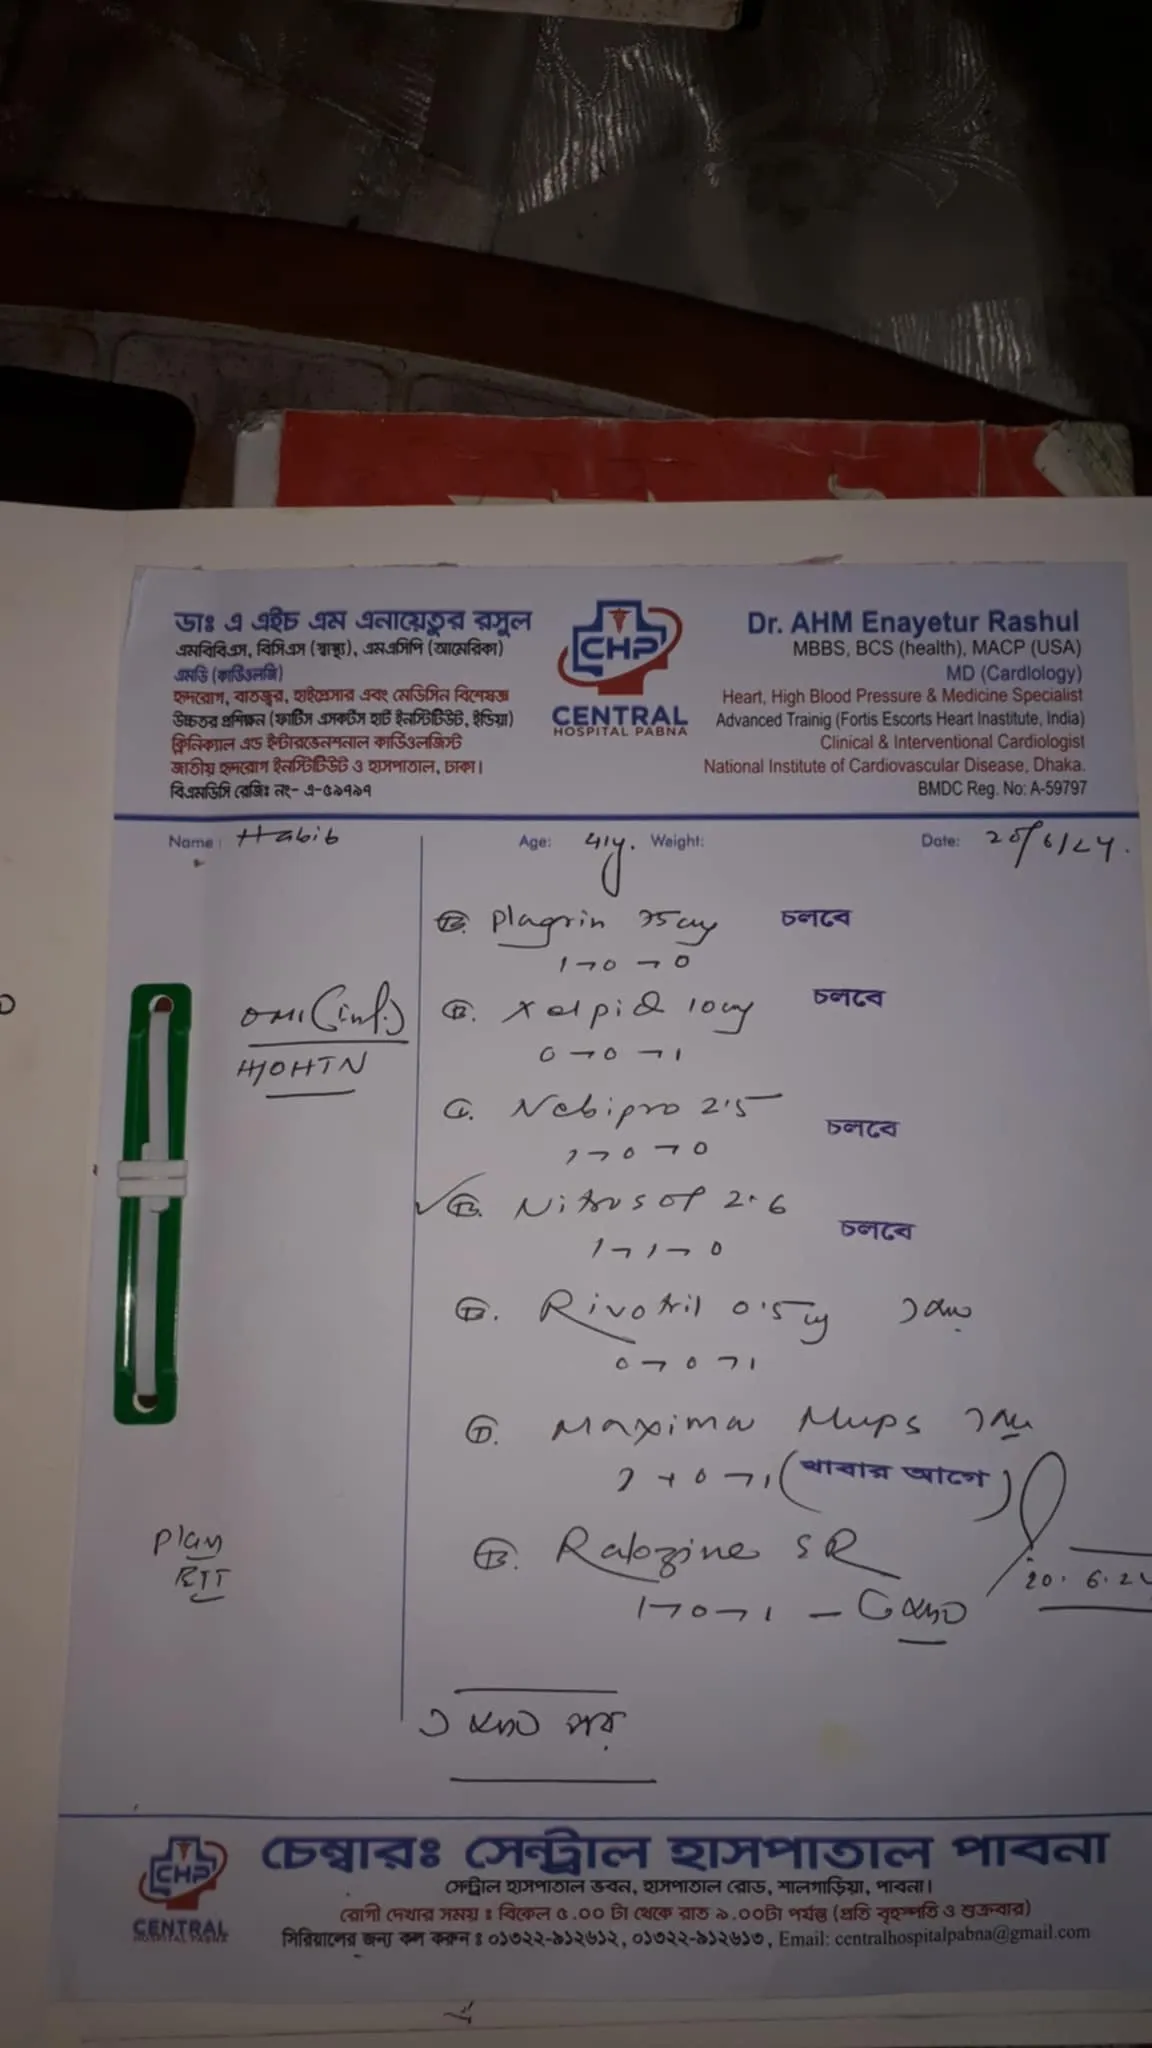 ডাঃ এ এইচ এম এনায়েতুর রসুল
এমবিবিএস, বিসিএস (স্বাস্থ্য), এমএসিপি (আমেরিকা)
এমডি (কার্ডিওলজি)
হৃদরোগ, বাতজ্বর, হাইপ্রেসার এবং মেডিসিন বিশেষজ্ঞ
উচ্চতর প্রশিক্ষন (ফর্টিস এসকর্টস হার্ট ইনস্টিটিউট, ইন্ডিয়া)
ক্লিনিক্যাল এন্ড ইন্টারভেনশনাল কার্ডিওলজিস্ট
জাতীয় হৃদরোগ ইনস্টিটিউট ও হাসপাতাল, ঢাকা।
বিএমডিসি রেজিঃ নং- এ-৫৯৭৯৭
CHP
CENTRAL
HOSPITAL PABNA
Dr. AHM Enayetur Rashul
MBBS, BCS (health), MACP (USA)
MD (Cardiology)
Heart, High Blood Pressure & Medicine Specialist
Advanced Trainig (Fortis Escorts Heart Inastitute, India)
Clinical & Interventional Cardiologist
National Institute of Cardiovascular Disease, Dhaka.
BMDC Reg. No: A-59797
Name: Habib Age: 41y. Weight: Date: 20/6/24.
Plagrin 75mg চলবে
1→0→0
OMI (inf.)
H/O HTN
Xelpid 10mg চলবে
0→0→1
Nebipro 2.5 চলবে
1→0→0
Nitrosof 2.6 চলবে
1→1→0
Rivotril 0.5mg
0→0→1
Maxima Mups
1→0→1 (খাবার আগে)
Plan
ETT
Rabzine SR
1→0→1 –
20.6.24
৩ মাস পর
CHP
CENTRAL
HOSPITAL PABNA
চেম্বারঃ সেন্ট্রাল হাসপাতাল পাবনা
সেন্ট্রাল হাসপাতাল ভবন, হাসপাতাল রোড, শালগাড়িয়া, পাবনা।
রোগী দেখার সময় ঃ বিকেল ৫.০০ টা থেকে রাত ৯.০০টা পর্যন্ত (প্রতি বৃহস্পতি ও শুক্রবার)
সিরিয়ালের জন্য কল করুন ঃ ০১৩২২-৯১২৬১২, ০১৩২২-৯১২৬১৩, Email: centralhospitalpabna@gmail.com